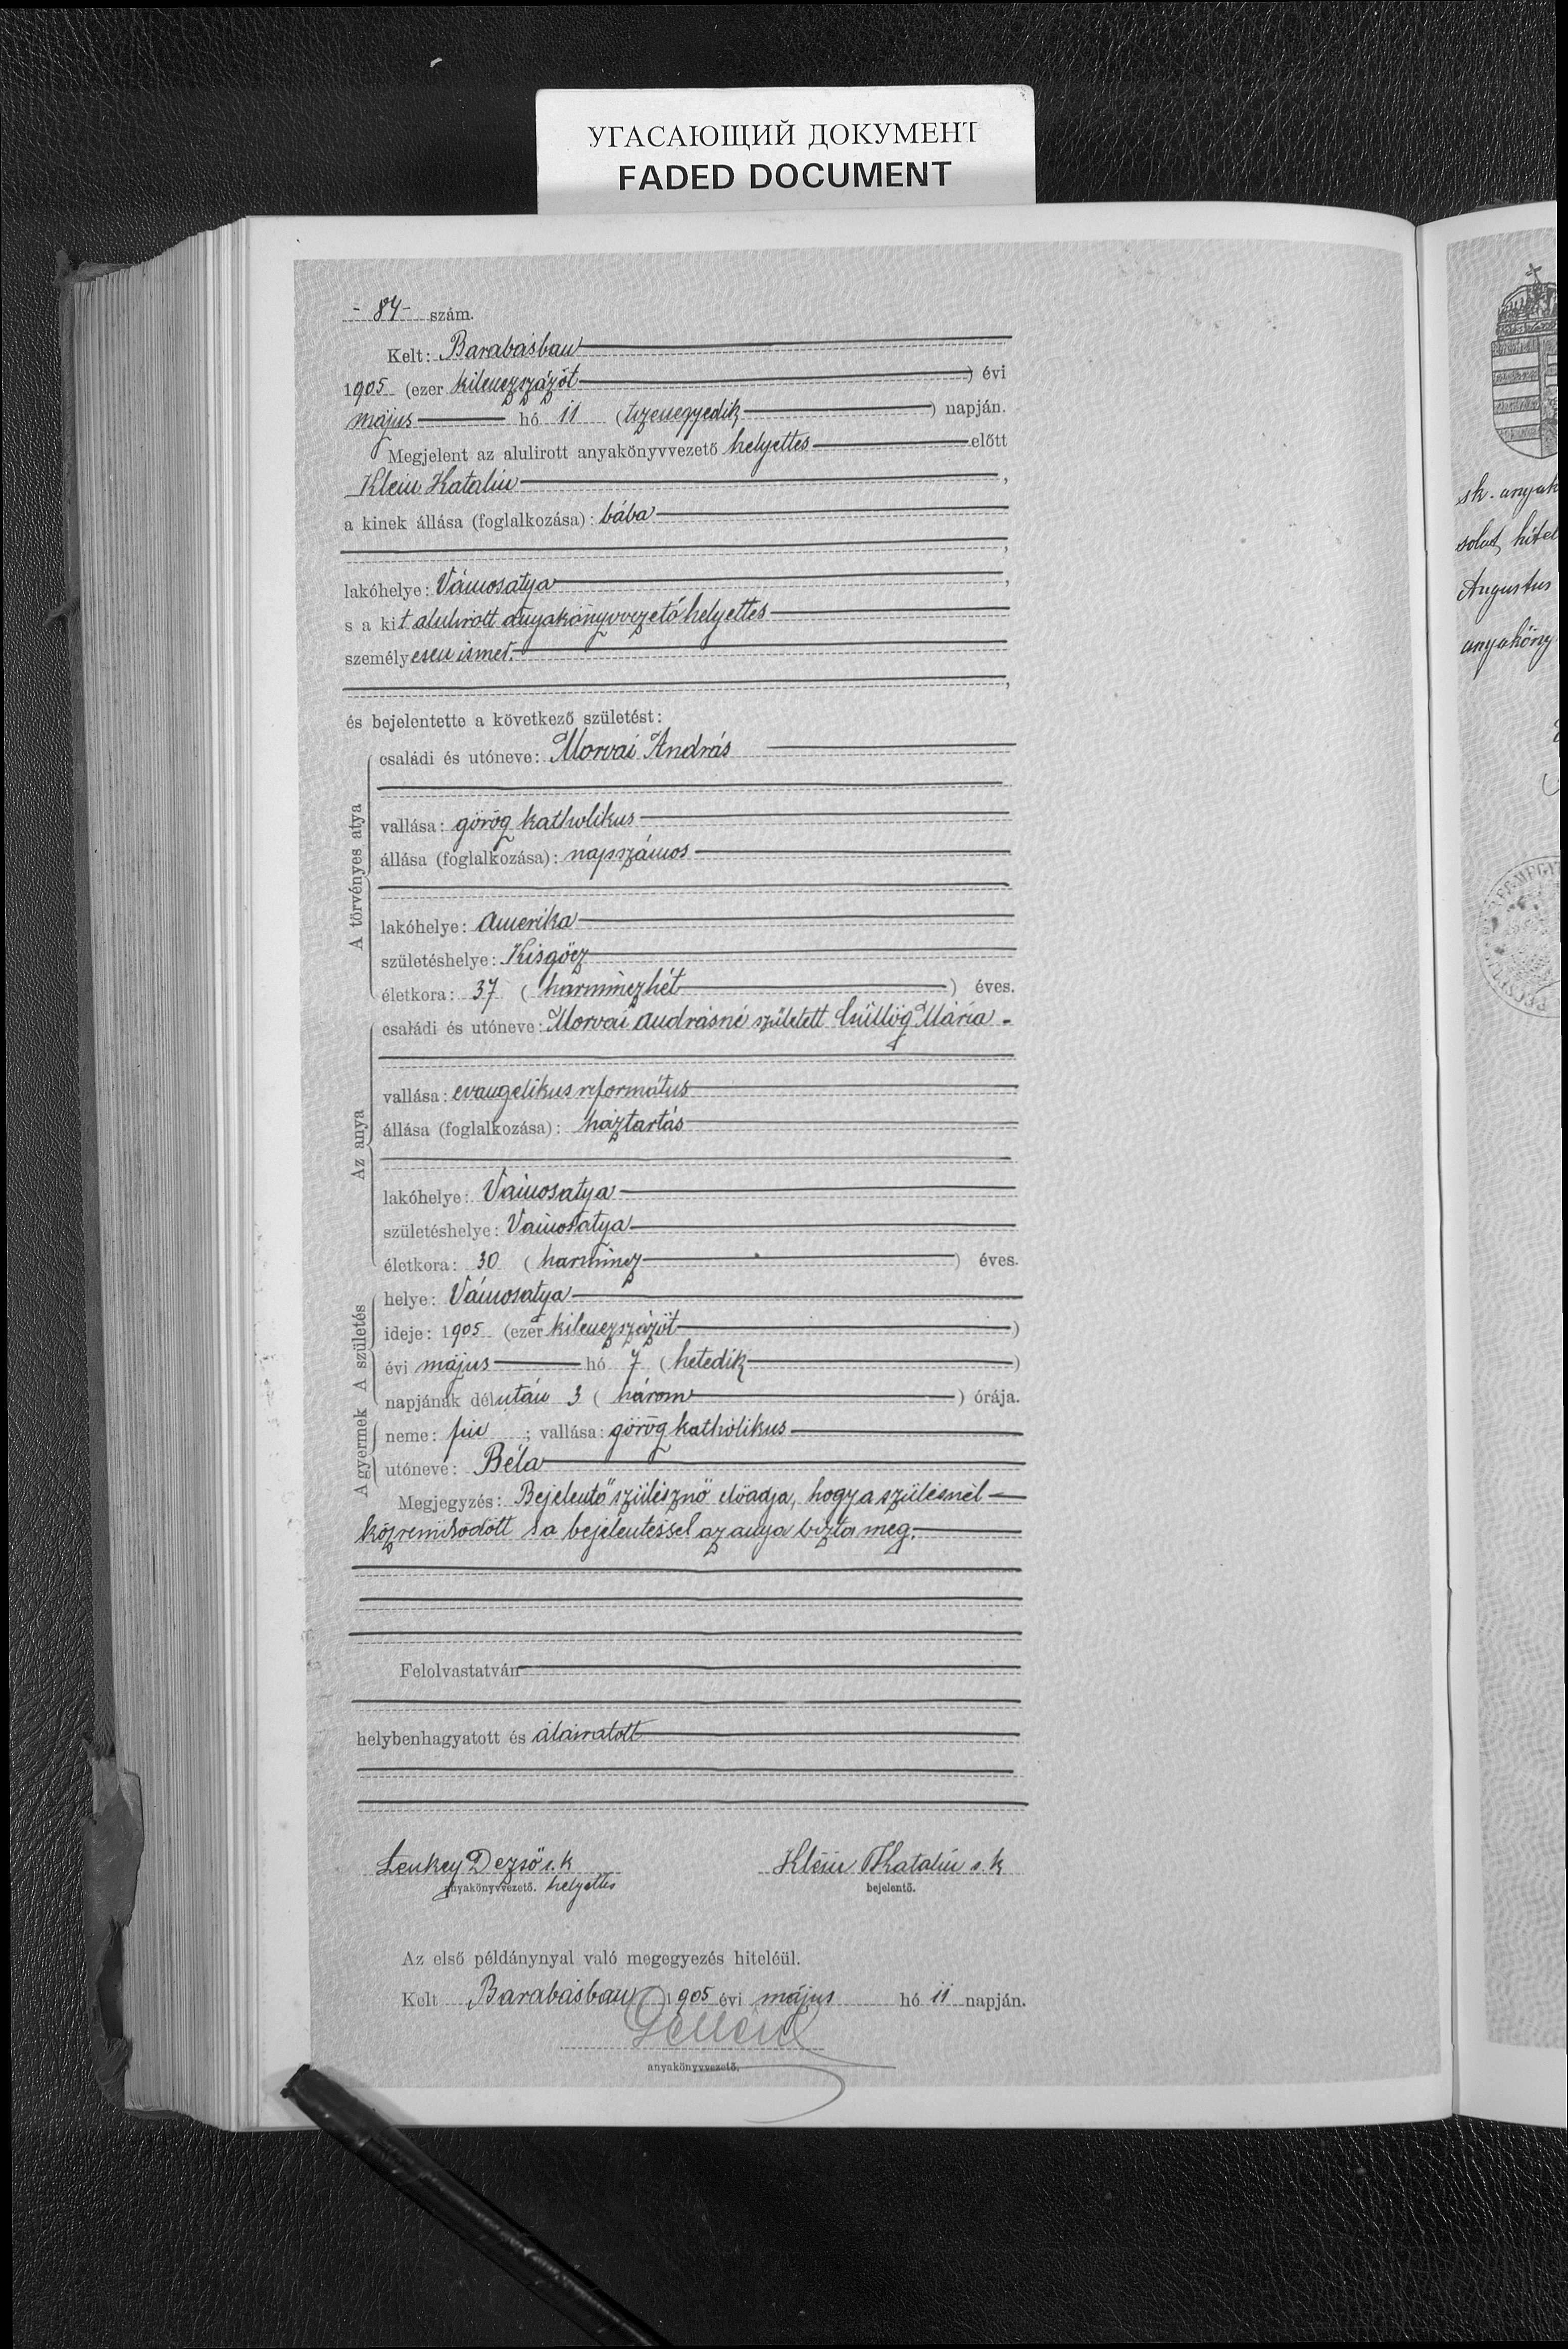 УГАСАЮЩИЙ ДОКУМЕНТ
FADED DOCUMENT
- 84 - szám.
Kelt: Barabásban
1905 (ezer kilenczszázöt) évi
május hó 11 (tizenegyedik) napján.
Megjelent az alulirott anyakönyvvezető helyettes előtt
Klein Katalin,
a kinek állása (foglalkozása): bába
,
lakóhelye: Vámosatya,
s a kit alulirott anyakönyvvezető helyettes
személyesen ismer.
,
és bejelentette a következő születést:
A törvényes atya
családi és utóneve: Morvai András
vallása: görög katholikus
állása (foglalkozása): napszámos
lakóhelye: Amerika
születéshelye: Kisgőcz
életkora: 37 (harminczhét) éves.
Az anya
családi és utóneve: Morvai Andrásné született Csüllög Mária -
vallása: evangelikus református
állása (foglalkozása): háztartás
lakóhelye: Vámosatya
születéshelye: Vámosatya
életkora: 30 (harmincz) éves.
A születés
helye: Vámosatya
ideje: 1905 (ezer kilenczszázöt)
évi május hó 7 (hetedik)
napjának délután 3 (három) órája.
A gyermek
neme: fiú; vallása: görög katholikus
utóneve: Béla
Megjegyzés: Bejelentő szülésznő előadja, hogy a szülésnél
közremüködött s a bejelentéssel az anya bizta meg.
Felolvastatván
helybenhagyatott és aláiratott
Lenkey Dezső s. k
anyakönyvvezető. helyettes
Klein Katalin s. k
bejelentő.
Az első példánynyal való megegyezés hiteléül.
Kelt Barabásban 1905 évi május hó 11 napján.
anyakönyvvezető.
sk. anyak
solat hitel
Augustus
anyaköny